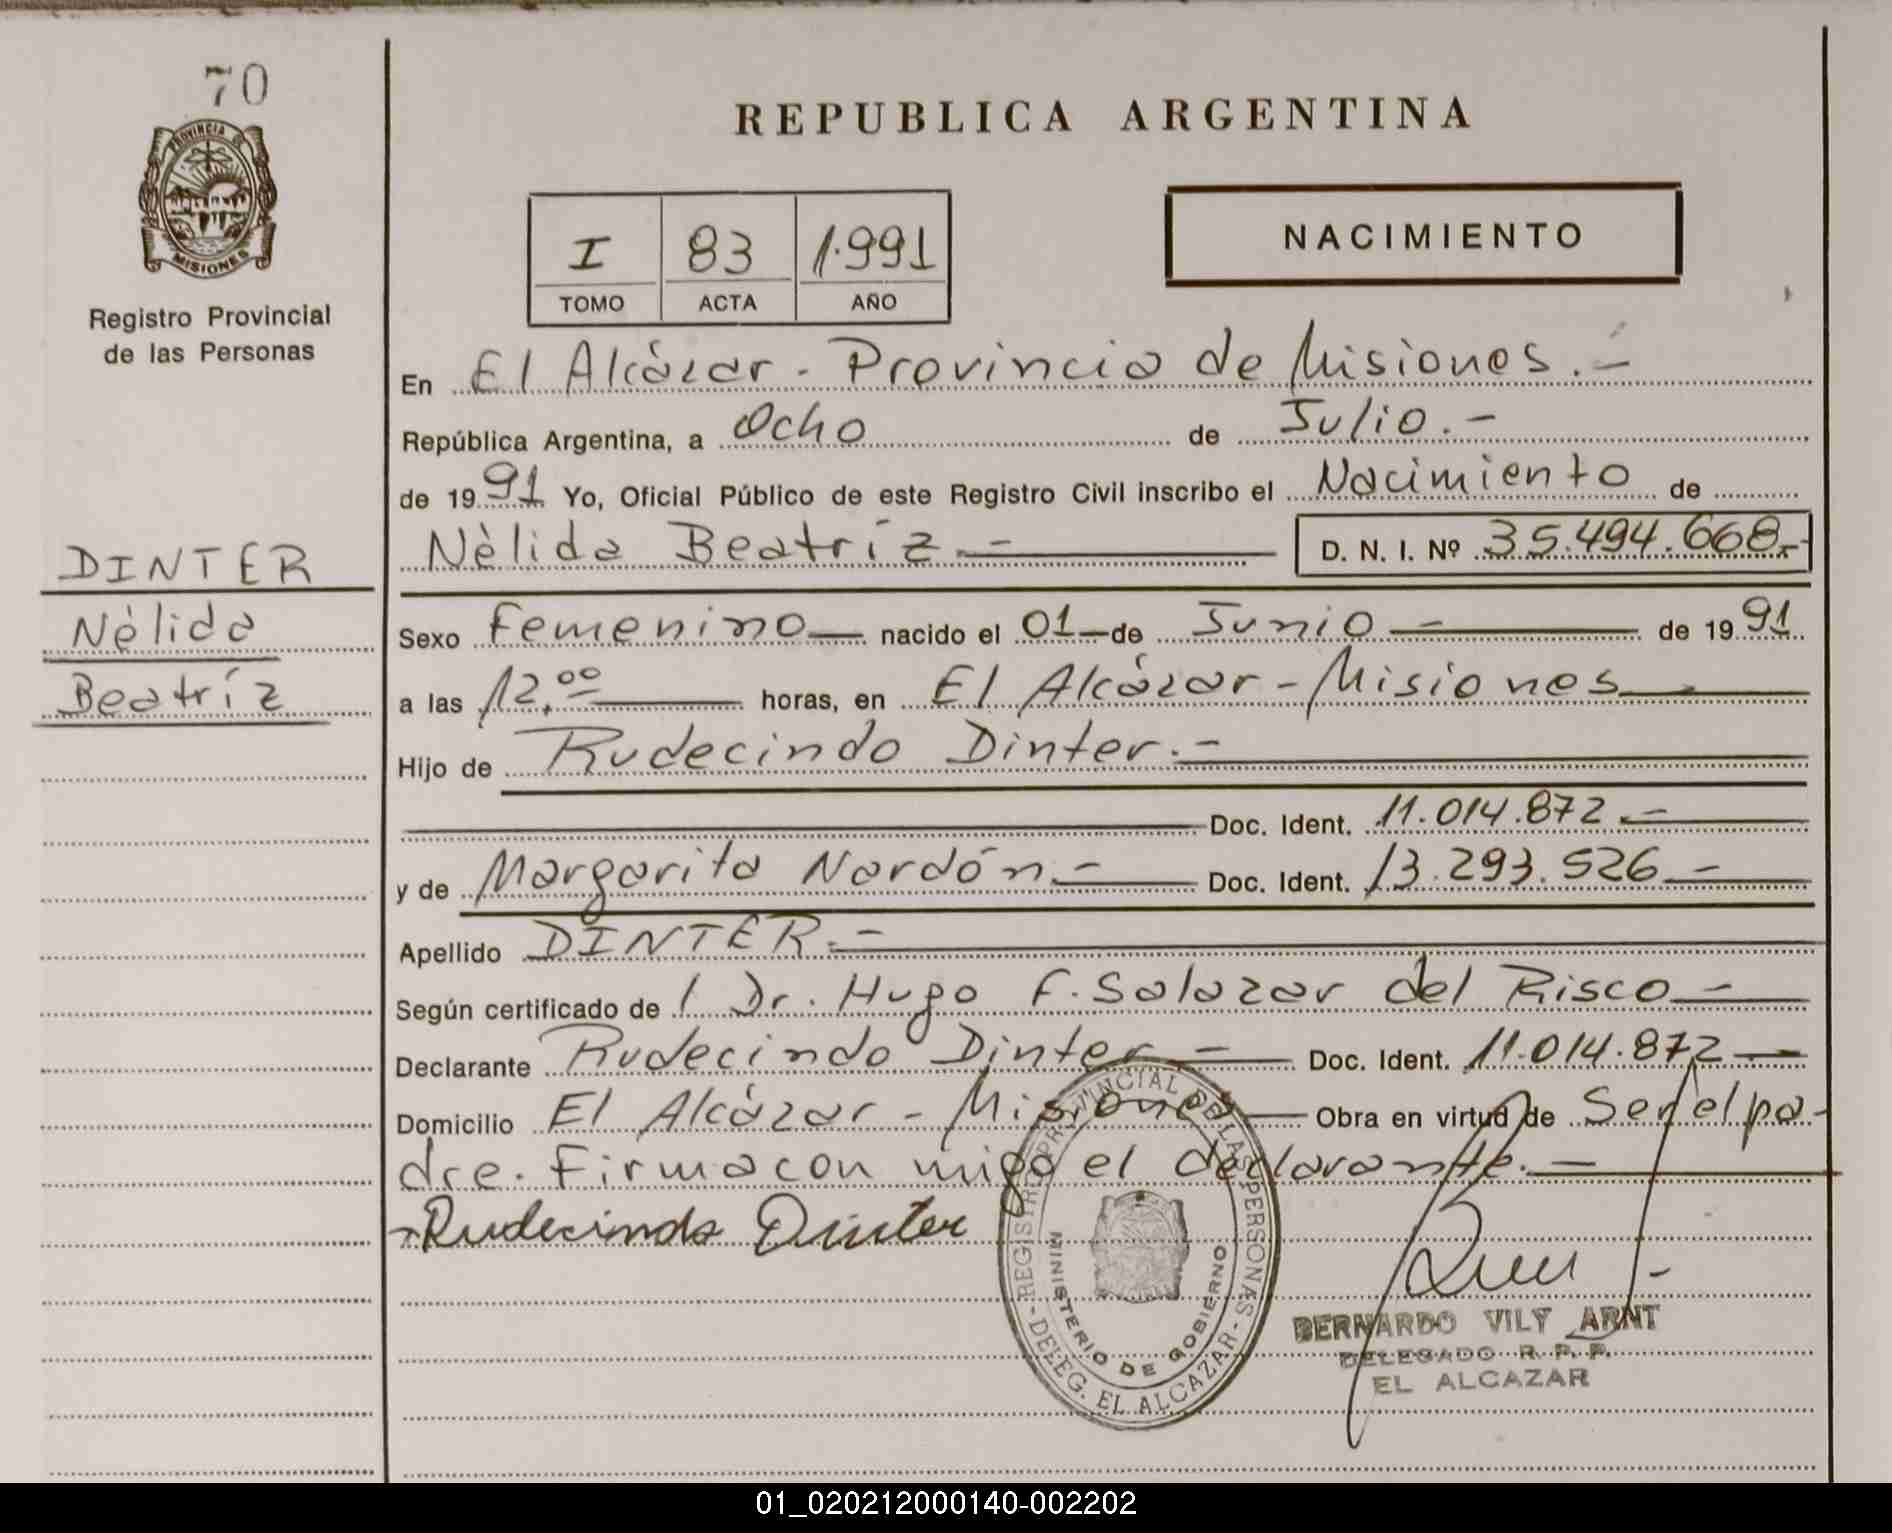 70
PROVINCIA
MISIONES
Registro Provincial
de las Personas
DINTER
Nèlida
Beatríz
REPUBLICA ARGENTINA
I 83 1.991
TOMO ACTA AÑO
NACIMIENTO
En El Alcázar - Provincia de Misiones.-
República Argentina, a Ocho de Julio.-
de 1991 Yo, Oficial Público de este Registro Civil inscribo el Nacimiento de
Nèlida Beatríz.- D. N. I. Nº 35.494.668.-
Sexo Femenino— nacido el 01—de Junio — de 1991
a las 12.00 horas, en El Alcázar - Misiones
Hijo de Rudecindo Dinter.-
Doc. Ident. 11.014.872.-
y de Margarita Nardón.- Doc. Ident. 13.293.526.-
Apellido DINTER.-
Según certificado de l Dr. Hugo F. Salazar del Risco -
Declarante Rudecindo Dinter - Doc. Ident. 11.014.872 -
Domicilio El Alcázar - Misiones Obra en virtud de Ser el pa-
dre. Firma con migo el declarante. -
Rudecindo Dinter
REGISTRO PROVINCIAL DE LAS PERSONAS - DELEG. EL ALCAZAR -
MINISTERIO DE GOBIERNO
BERNARDO VILY ARNT
DELEGADO R. P. P.
EL ALCAZAR
01_020212000140-002202